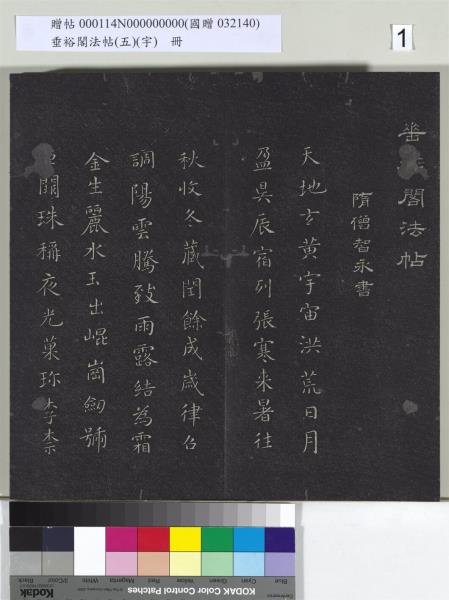 贈帖 000114N000000000(國贈 032140)
垂裕閣法帖(五)(宇) 冊
1
垂 閣法帖
隋僧智永書
天地玄黃宇宙洪荒日月
盈昃辰宿列張寒来暑往
秋收冬藏閏餘成歲律召
調陽雲騰致雨露結為霜
金生麗水玉出崐崗劒號
巨闕珠稱夜光菓珎李柰
Blue Cyan Green Yellow Red Magenta White 3/Color Black
Kodak
KODAK Color Control Patches